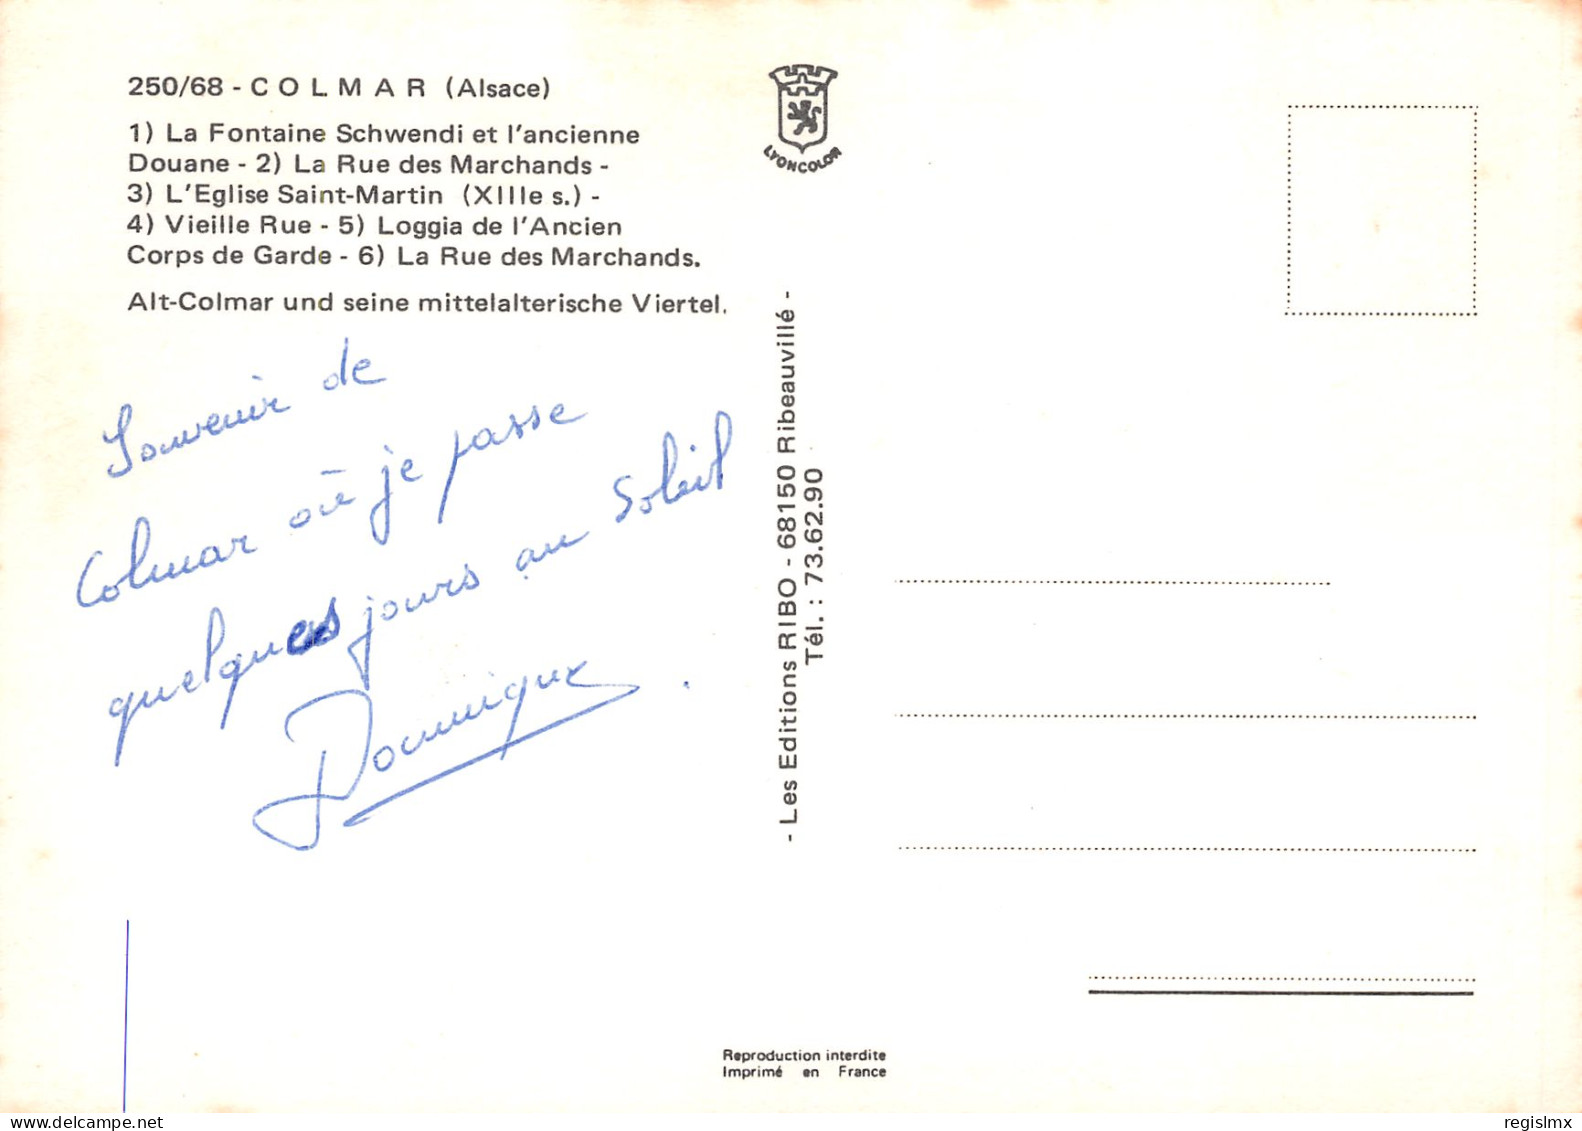 250/68 - C O L M A R (Alsace)
1) La Fontaine Schwendi et l'ancienne
Douane - 2) La Rue des Marchands -
3) L'Eglise Saint-Martin (XIIIe s.) -
4) Vieille Rue - 5) Loggia de l'Ancien
Corps de Garde - 6) La Rue des Marchands.
Alt-Colmar und seine mittelalterische Viertel.
Souvenir de
Colmar où je passe
quelques jours au soleil
Dominique
LYONCOLOR
- Les Editions RIBO - 68150 Ribeauvillé -
Tél. : 73.62.90
Reproduction interdite
Imprimé en France
regislmx